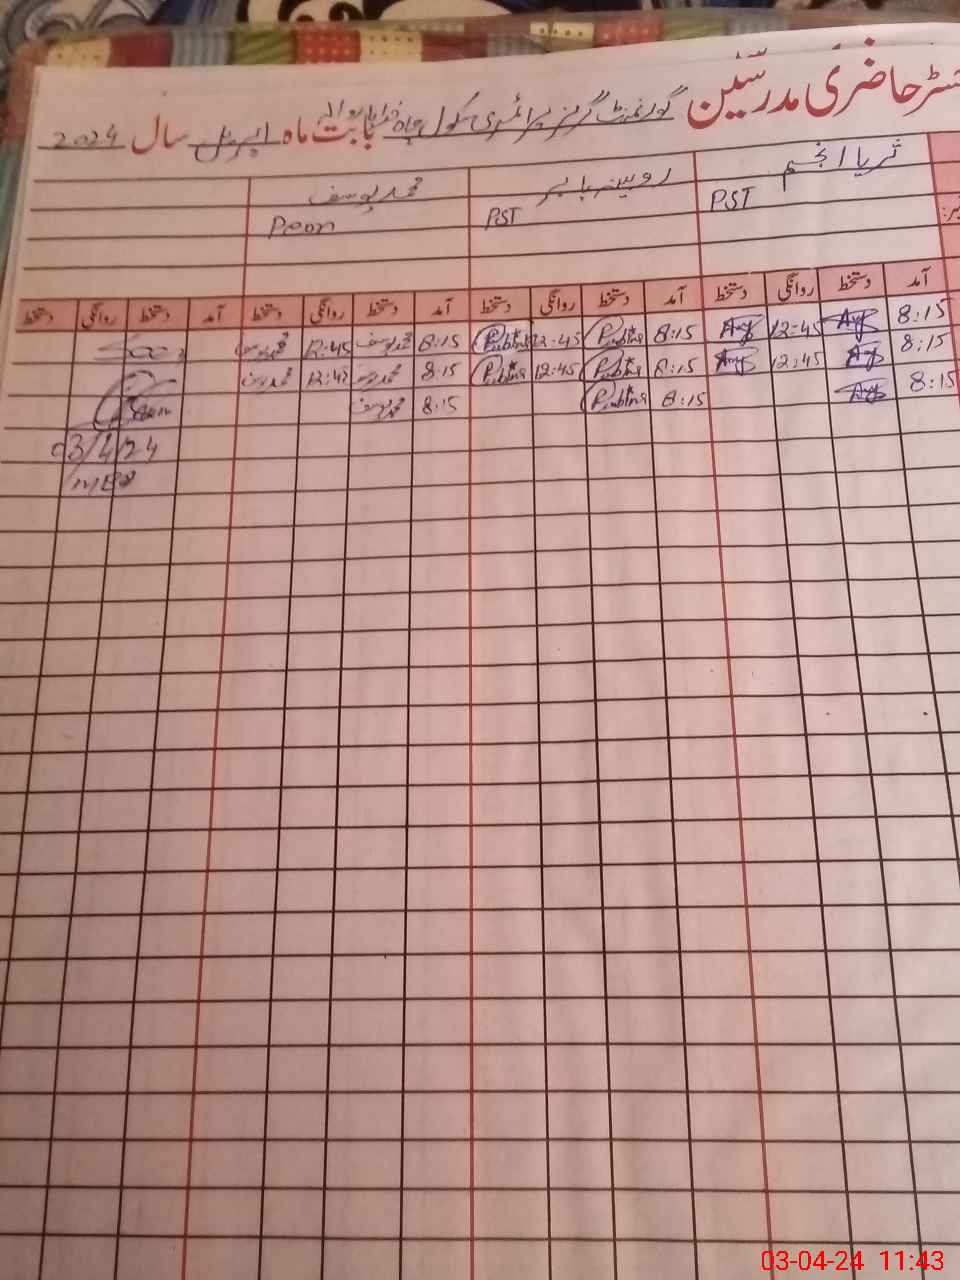 رجسٹر حاضری مدرسین گورنمنٹ گرلز پرائمری سکول چاہ بابت ماہ اپریل سال 2024
ثریا انجم روبینہ بابر محمد یوسف
PST PST Peon
آمد دستخط روانگی دستخط آمد دستخط روانگی دستخط آمد دستخط روانگی دستخط آمد دستخط روانگی دستخط
8:15 12:45 8:15 12:45 8:15 محمد یوسف 12:45 محمد یوسف
8:15 12:45 8:15 12:45 8:15 محمد یوسف 12:45 محمد یوسف
8:15 8:15 8:15 محمد یوسف
03/4/24
03-04-24 11:43